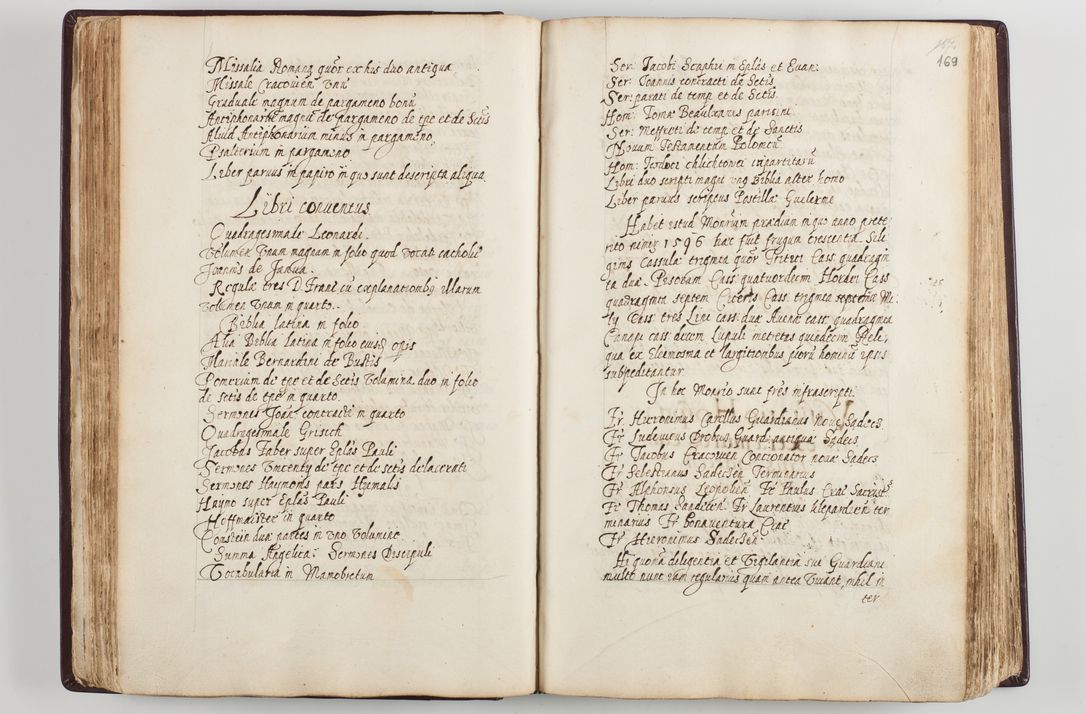 Missalia Romana quor ex his duo antiqua
Missale Cracovien Vnū
Graduale magnum de pargameno bonū
Antiphonarm magnū de pargameno de tpe et de Sctis
Aliud Antiphonarium minus in pargameno
Psalterium in pargameno
Liber parvus in papiro in quo sunt descripta aliqua
Libri conventus
Quadragesimale Leonardi
Volumen Vnum magnum in folio quod vocat catholicō
Joannis de Janua
Regulæ tres D Franc cū explanationibq illarum
volumen Vnum in quarto
Biblia latina in folio
Alia Biblia latina in folio eiusd opis
Mariale Bernardini de Bustis
Pomerium de tpe et de Sctis Volumina duo in folio
de sctis de tpe in quarto
Sermones Joan contracti in quarto
Quadragesimale Gritsch
Jacobus Faber super Eplas Pauli
Sermones Vincenty de tpe et de sctis delacerati
Sermones Haymonis pars Hyemalis
Haymo super Eplas Pauli
Hoffmaister in quarto
duæ partes in Vno Volumine
Summa Angelica: Sermones Discipuli
Vocabularia in Mamotrectum
169
Ser: Jacobi in Eplas et Evan:
Ser: Joannis contracti de Sctis
Ser: parati de temp et de Sctis
Hom: Tomæ Beaulxamis parisini
Ser: Meffreti de temp et de Sanctis
Novum Testamentum Polonicū
Hom: Jodoci chlichtovei inpartitarū
Libri duo scripti magni vnq Biblia alter homo
Liber parvus scriptus Postilla Guelerme
Habet istud Monrium prædium in quo anno prete
rito nimir 1596 hæc fuit frugum crescentia Sili
ginis Cassulæ triginta quor Tritici Cass quadragin
ta duæ Pisorum Cass: quatuordecim Hordei Cass
quadraginta septem Ciceris Cass: triginta Mi:
ly Cass: tres Lini cass: duæ Avenæ cass: quadraginta
Canapi cass: decem Lupuli metretas quindecim Reli:
qua ex Eleemosina et largitionibus piorū hominū ipsis
subpeditantur
In hoc Monrio sunt frēs infrascripti
Fr Hieronimus Carillus Guardianus Novæ Sadecs
Fr Ludovicus Probus Guard: antiquæ Sadecs
Fr Jacobus Cracovien Concionator novæ Sadecs
Fr Selestianus Sadecsen Terminarius
Fr Alphonsus Leopolien Fr Paulus Crac Sacrist
Fr Thomas Sandecien Fr Laurentius klepardien ter
minarius Fr Bonaventura Crac
Fr Hieronimus Sadecsen
Hi quonā diligentia et Vigilantia sui Guardiani
multō nunc iam regularius quam antea Vivant, nihil in
ter